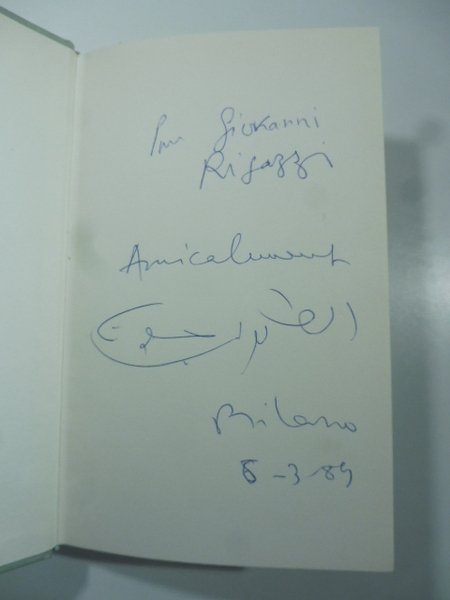 Pour Giovanni
Rigazzi
Amicalement
Milano
8-3-89